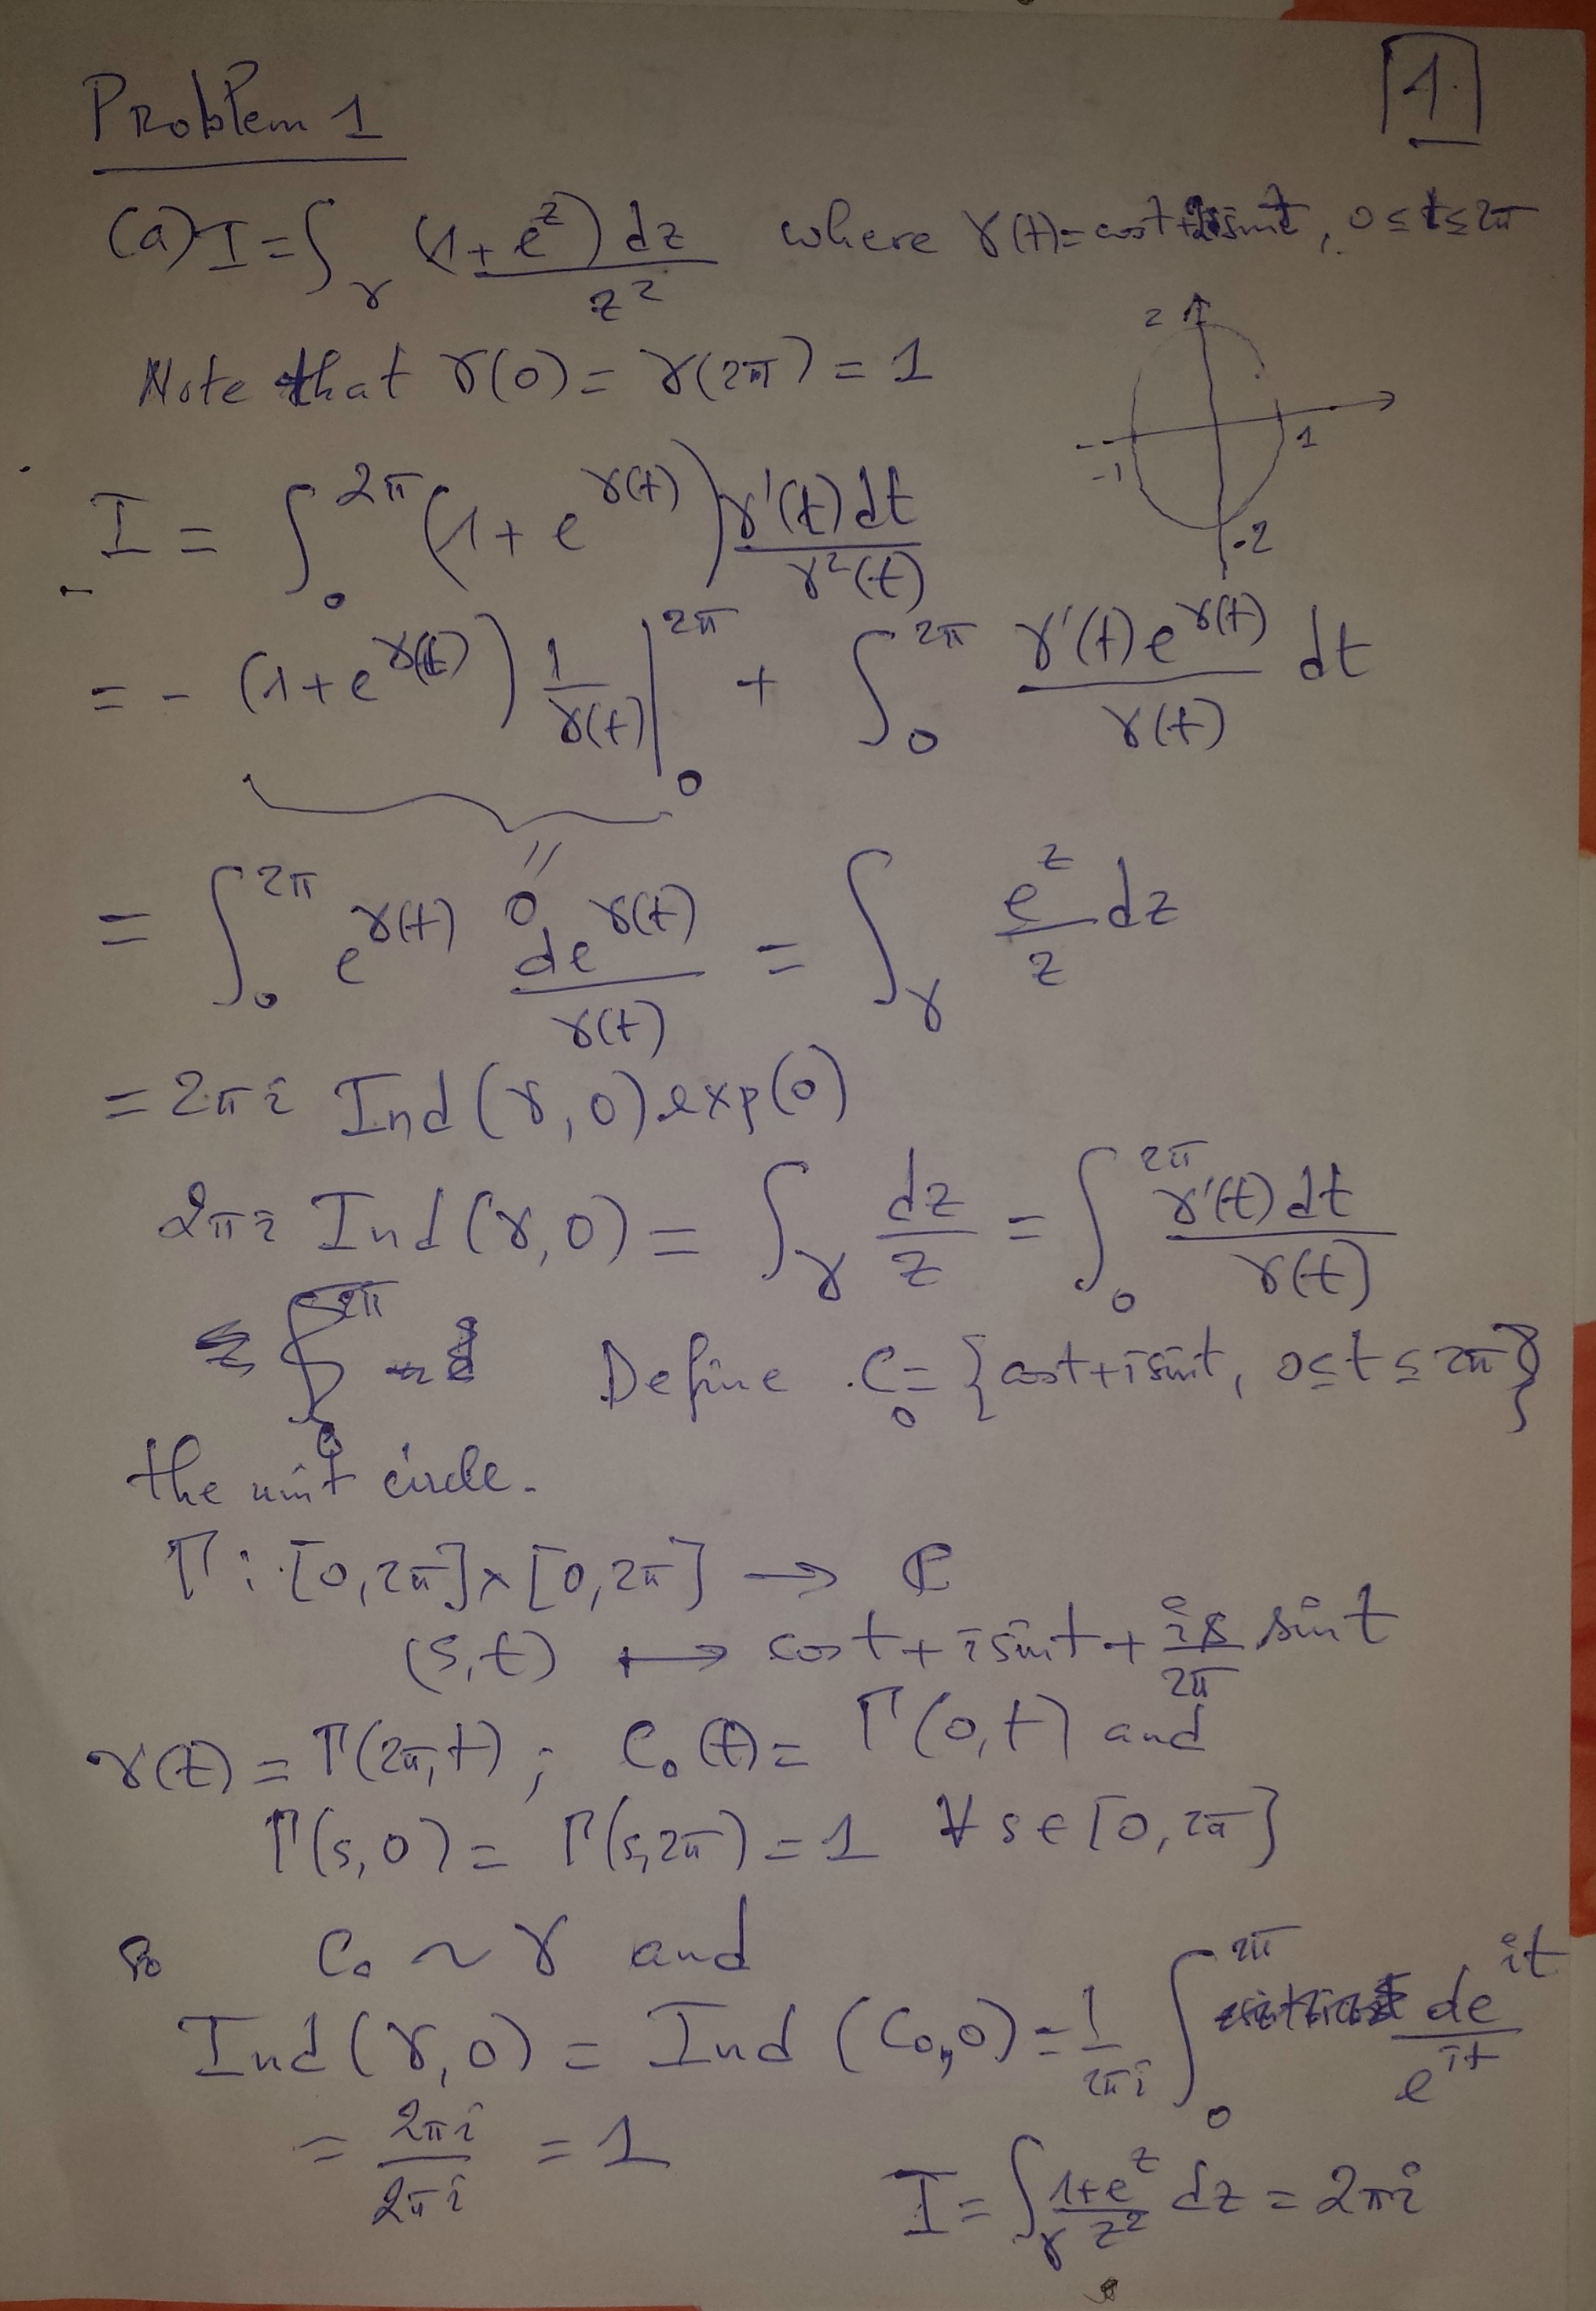 Problem 1
1
(a) I = ∫_γ (1+e^z) dz / z² where γ(t) = cost + 2i sint, 0 ≤ t ≤ 2π
Note that γ(0) = γ(2π) = 1
2
1
-1
-2
I = ∫_0^{2π} (1 + e^{γ(t)}) γ'(t) dt / γ²(t)
= - (1 + e^{γ(t)}) 1/γ(t) |_0^{2π} + ∫_0^{2π} γ'(t) e^{γ(t)} / γ(t) dt
= 0
= ∫_0^{2π} e^{γ(t)} de^{γ(t)} / γ(t) = ∫_γ e^z / z dz
= 2πi Ind(γ, 0) exp(0)
2πi Ind(γ, 0) = ∫_γ dz / z = ∫_0^{2π} γ'(t) dt / γ(t)
Define C_0 = {cost + i sint, 0 ≤ t ≤ 2π}
the unit circle.
Γ : [0, 2π] × [0, 2π] → ℂ
(s, t) ↦ cost + i sint + is/2π sint
γ(t) = Γ(2π, t) ; C_0(t) = Γ(0, t) and
Γ(s, 0) = Γ(s, 2π) = 1 ∀ s ∈ [0, 2π]
so C_0 ~ γ and
Ind(γ, 0) = Ind(C_0, 0) = 1/2πi ∫_0^{2π} de^{it} / e^{it}
= 2πi / 2πi = 1
I = ∫_γ 1+e^z / z² dz = 2πi